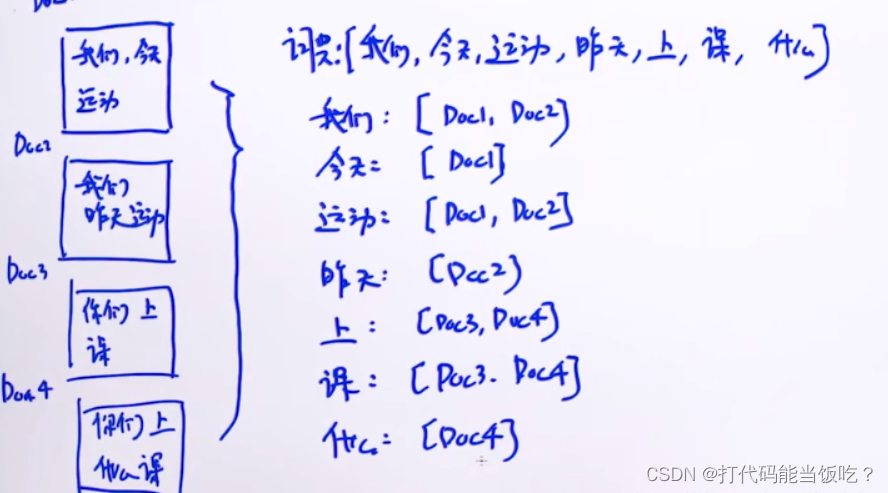 我们, 今天
运动
Doc2
我们
昨天运动
Doc3
你们 上
课
Doc4
你们上
什么课
词典:[我们, 今天, 运动, 昨天, 上, 课, 什么]
我们: [Doc1, Doc2]
今天: [Doc1]
运动: [Doc1, Doc2]
昨天: [Doc2]
上: [Doc3, Doc4]
课: [Doc3. Doc4]
什么: [Doc4]
CSDN @打代码能当饭吃？